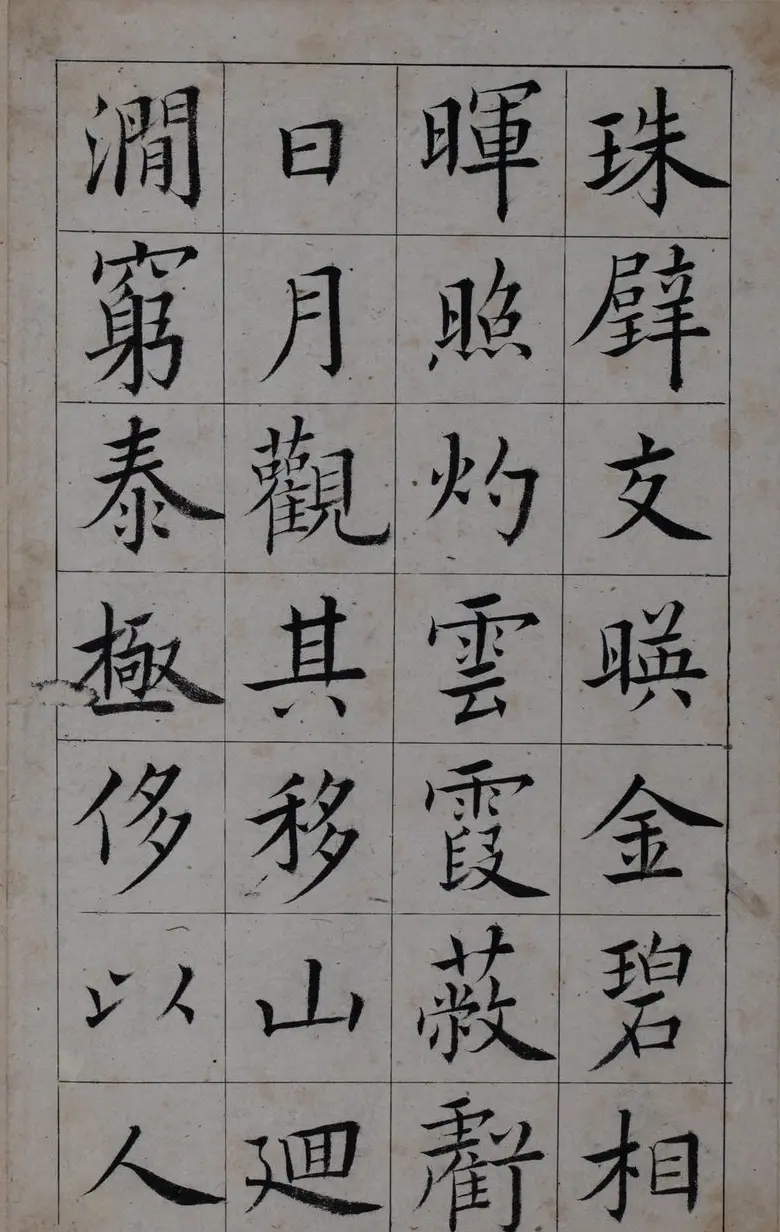 珠璧交暎金碧相
暉照灼雲霞蔽虧
日月觀其移山廻
澗窮泰極侈以人